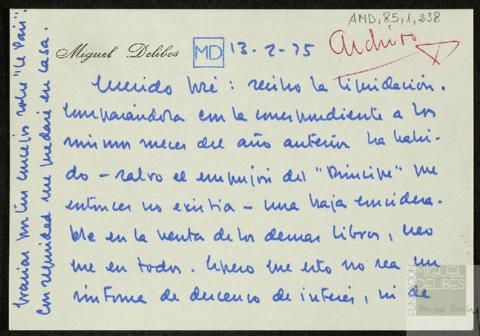 AMD,85,1,238
Miguel Delibes
MD
13-2-75
Archivo
Querido José: recibo la liquidación.
Comparándola con la correspondiente a los
mismos meses del año anterior ha habi-
do - salvo el empujón del "Príncipe" que
entonces no existía - una baja considera-
ble en la venta de los demás libros, creo
que en todos. Espero que esto no sea un
síntoma de descenso de interés, ni de
Gracias por tus consejos sobre "Le Pari".
Con seguridad me quedaré en casa.
FUNDACIÓN
MIGUEL
DELIBES